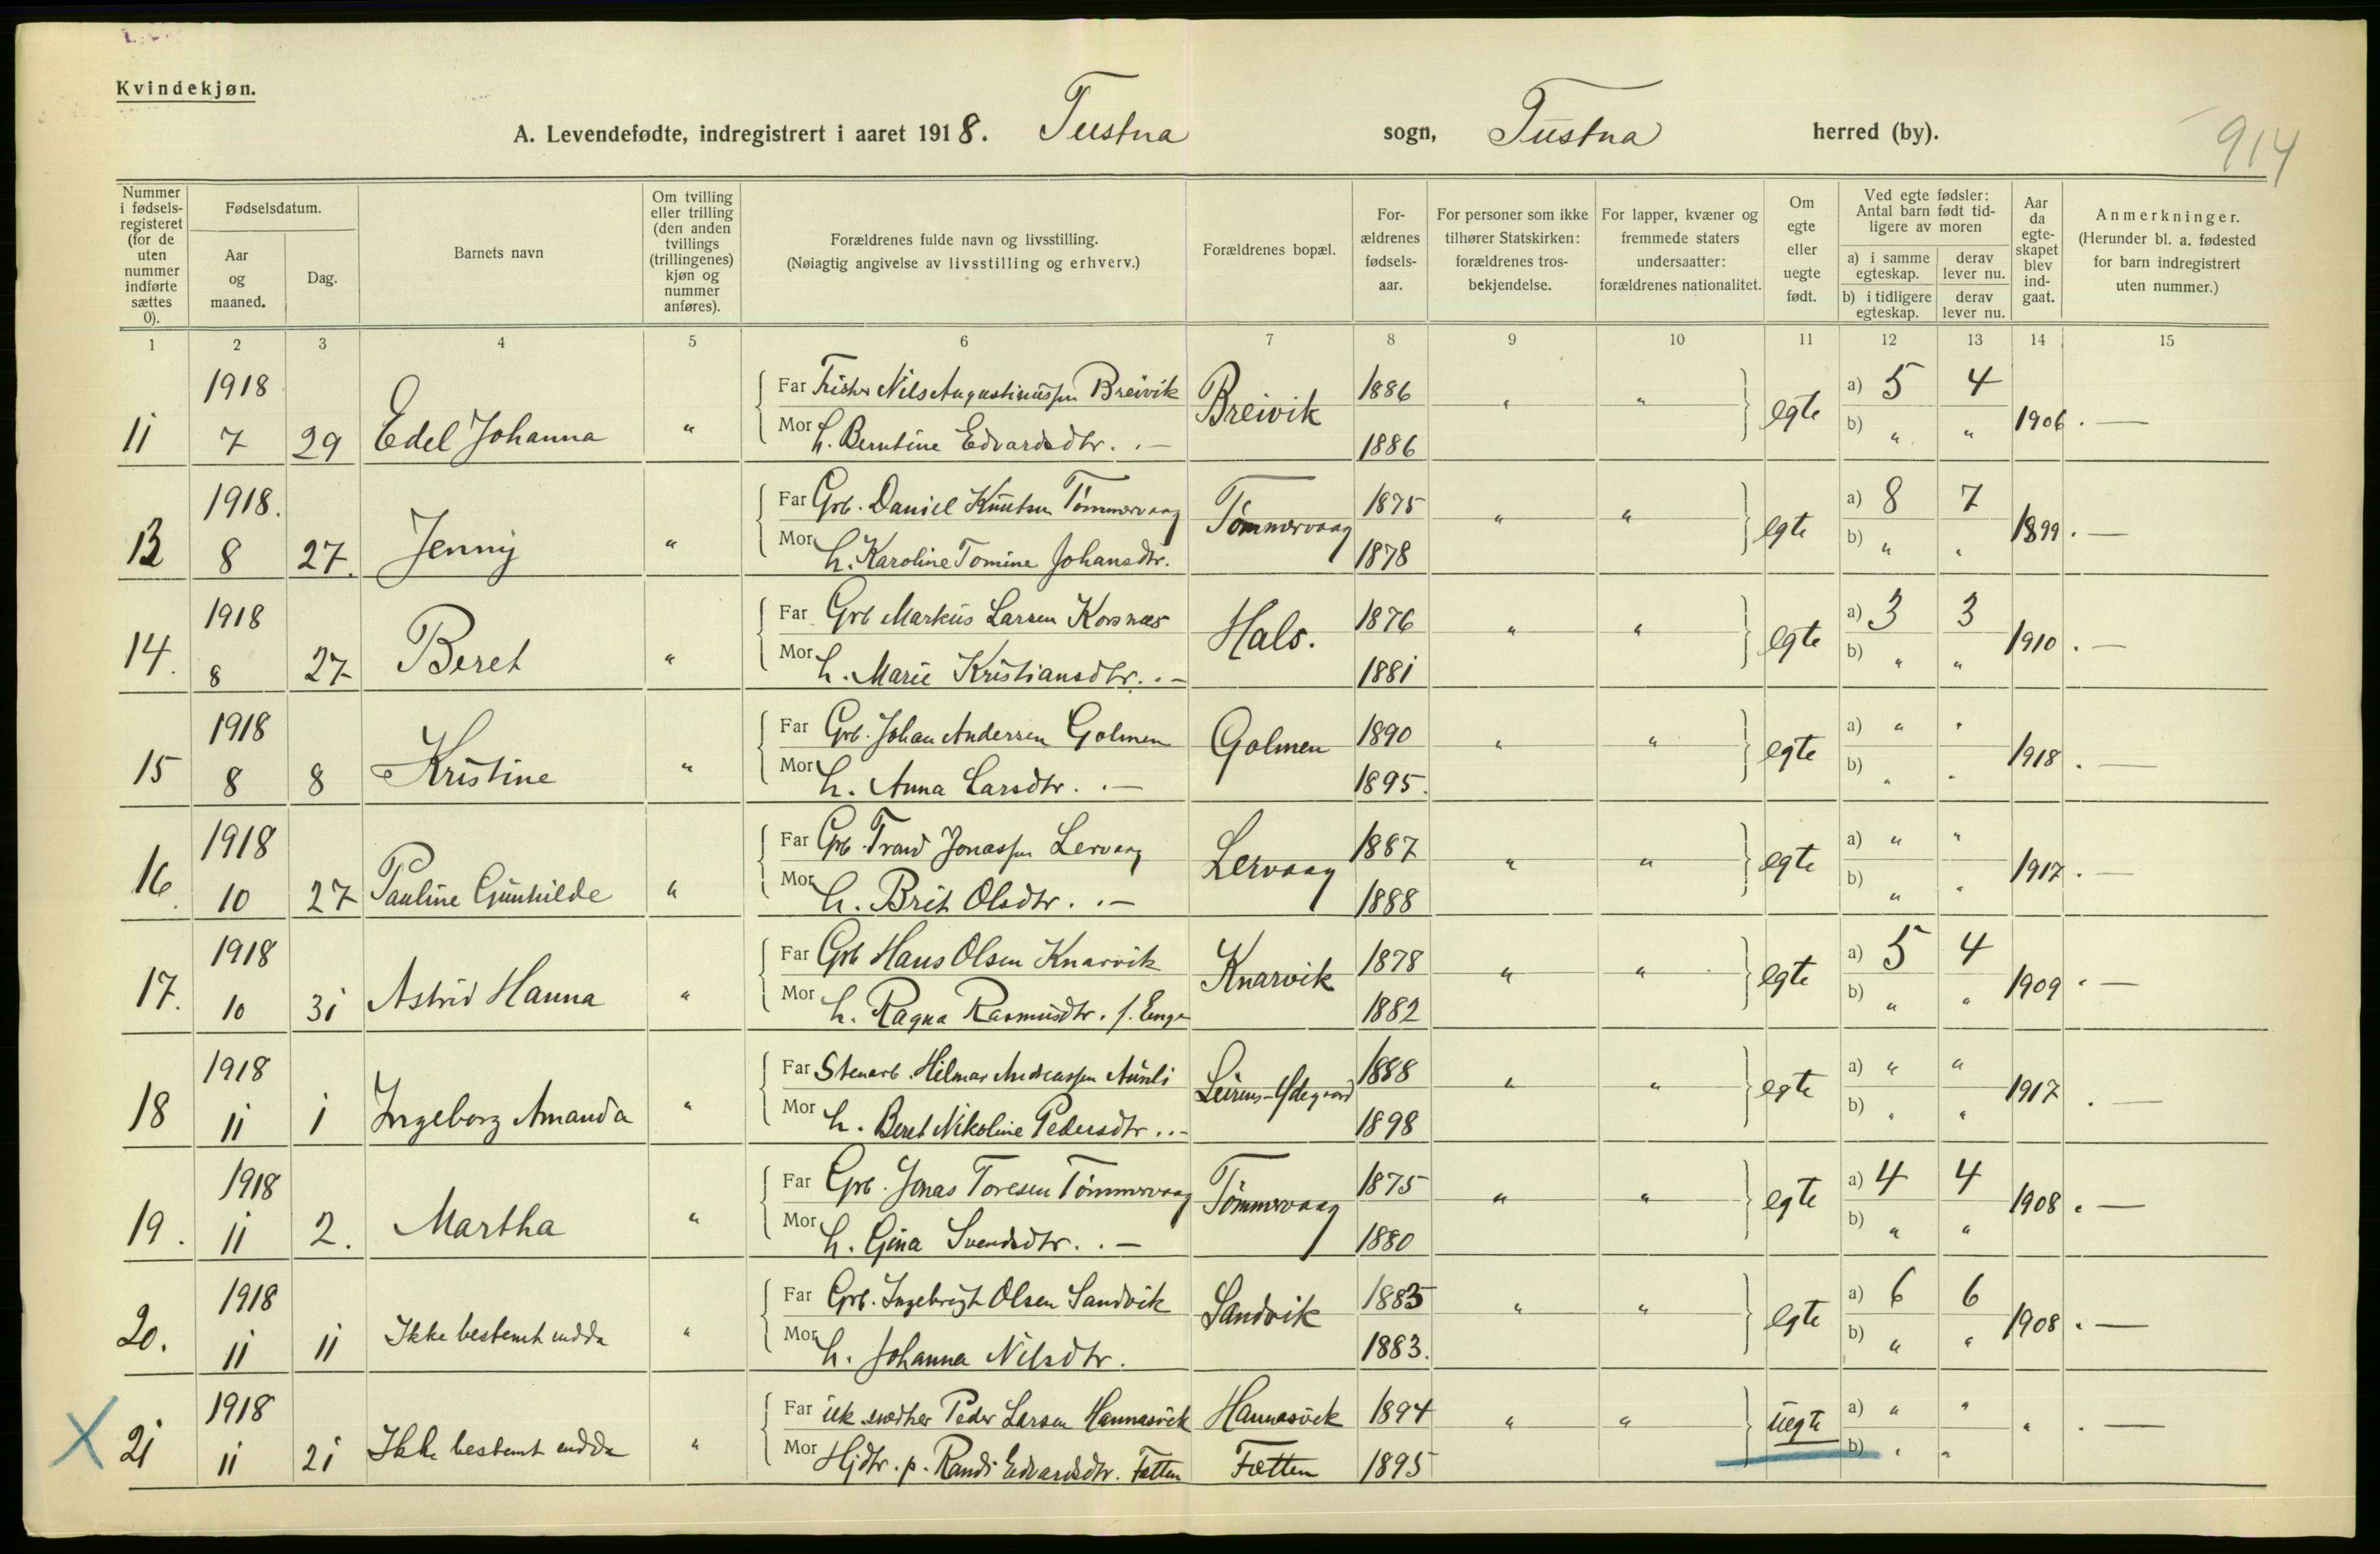 Kvindekjøn.
A. Levendefødte, indregistrert i aaret 1918. Tustna sogn, Tustna herred (by).
914
Nummer i fødsels-registeret (for de uten nummer indførte sættes 0).
Fødselsdatum.
Aar og maaned.
Dag.
Barnets navn
Om tvilling eller trilling (den anden tvillings (trillingenes) kjøn og nummer anføres).
Forældrenes fulde navn og livsstilling.
(Nøiagtig angivelse av livsstilling og erhverv.)
Forældrenes bopæl.
For-ældrenes fødsels-aar.
For personer som ikke tilhører Statskirken: forældrenes tros-bekjendelse.
For lapper, kvæner og fremmede staters undersaatter: forældrenes nationalitet.
Om egte eller uegte født.
Ved egte fødsler: Antal barn født tid-ligere av moren
a) i samme egteskap. derav lever nu.
b) i tidligere egteskap. derav lever nu.
Aar da egte-skapet blev ind-gaat.
Anmerkninger.
(Herunder bl. a. fødested for barn indregistrert uten nummer.)
1 2 3 4 5 6 7 8 9 10 11 12 13 14 15
1918 Far Fisker Nils Augustinussen Breivik Breivik 1886 " " egte a) 5 4 1906 . —
11 7 29 Edel Johanna " Mor h. Berntine Edvardsdtr. . — 1886 b) " "
1918. Far Grb. Daniel Knutsen Tømmervaag Tømmervaag 1875 " " egte a) 8 7 1899 . —
13 8 27. Jenny " Mor h. Karoline Tomine Johansdtr. 1878 b) " "
1918 Far Grb Markus Larsen Korsnæs Hals. 1876 " " egte a) 3 3 1910 . —
14. 8 27 Beret " Mor h. Marie Kristiansdtr. . — 1881 b) " "
1918 Far Grb. Johan Andersen Golmen Golmen 1890 " " egte a) " " 1918 . —
15 8 8 Kristine " Mor h. Anna Larsdtr. . — 1895. b) " "
1918 Far Grb. Trond Jonassen Lervaag Lervaag 1887 " " egte a) " " 1917 . —
16. 10 27 Pauline Gunhilde " Mor h. Brit Olsdtr. . — 1888 b) " "
1918 Far Grb Hans Olsen Knarvik Knarvik 1878 " " egte a) 5 4 1909 . —
17. 10 31 Astrid Hanna " Mor h. Ragna Rasmusdtr. f. Enge 1882 b) " "
1918 Far Stenarb. Hilmar Andreassen 1888 " " egte a) " " 1917 . —
18 11 1 Ingeborg Amanda " Mor h. Beret Nikoline Pedersdtr. . — 1898 b) " "
1918 Far Grb. Jonas Toresen Tømmervaag Tømmervaag 1875 " " egte a) 4 4 1908 . —
19. 11 2. Martha " Mor h. Gina Svendsdtr. . — 1880 b) " "
1918 Far Grb. Ingebrigt Olsen Sandvik Sandvik 1883 " " egte a) 6 6 1908 . —
20. 11 11 Ikke bestemt endda " Mor h. Johanna Nilsdtr. 1883. b) " "
1918 Far Peder Larsen Hannasvik Hannasvik 1894 " " uegte a) " " " . —
X 21 11 21 Ikke bestemt endda " Mor Hjdtr. p. Randi Edvardsdtr. Fætten Fætten 1895 b) " "